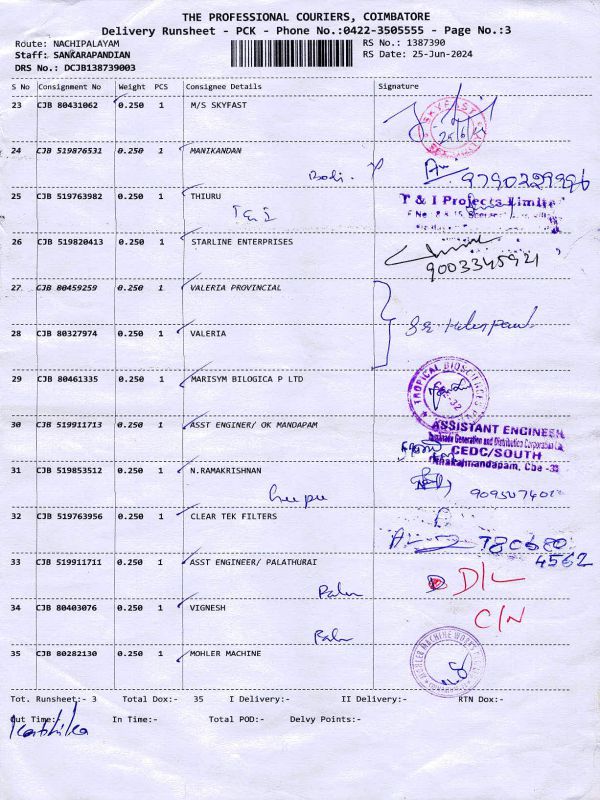 THE PROFESSIONAL COURIERS, COIMBATORE
Delivery Runsheet - PCK - Phone No.:0422-3505555 - Page No.:3
Route: NACHIPALAYAM RS No.: 1387390
Staff: SANKARAPANDIAN RS Date: 25-Jun-2024
DRS No.: DCJB138739003
S No Consignment No Weight PCS Consignee Details Signature
23 CJB 80431062 0.250 1 M/S SKYFAST
SKYFAST
24 CJB 519876531 0.250 1 MANIKANDAN
9790229996
25 CJB 519763982 0.250 1 THIURU T & I Projects Limited
26 CJB 519820413 0.250 1 STARLINE ENTERPRISES
9003345921
27 CJB 80459259 0.250 1 VALERIA PROVINCIAL
28 CJB 80327974 0.250 1 VALERIA
29 CJB 80461335 0.250 1 MARISYM BILOGICA P LTD
TROPICAL BIOSCIENCES
30 CJB 519911713 0.250 1 ASST ENGINER/ OK MANDAPAM ASSISTANT ENGINEER
Tamilnadu Generation and Distribution Corporation Ltd.
CEDC/SOUTH
31 CJB 519853512 0.250 1 N.RAMAKRISHNAN
32 CJB 519763956 0.250 1 CLEAR TEK FILTERS
780680
4562
33 CJB 519911711 0.250 1 ASST ENGINEER/ PALATHURAI
D/L
34 CJB 80403076 0.250 1 VIGNESH C/N
35 CJB 80282130 0.250 1 MOHLER MACHINE
MOHLER MACHINE WORKS
Tot. Runsheet:- 3 Total Dox:- 35 I Delivery:- II Delivery:- RTN Dox:-
Out Time:- In Time:- Total POD:- Delvy Points:-
Karthika